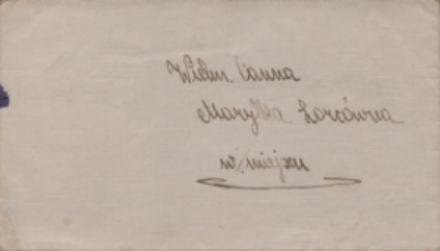 Wielm. Panna
Marylka
w miejscu